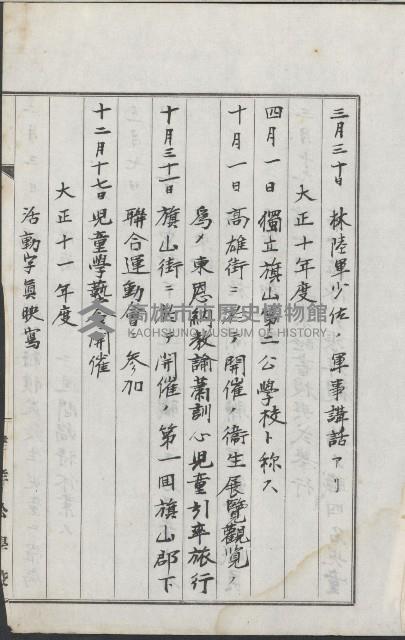 三月三十日 林陸軍少佐ノ軍事講話アリ
大正十年度
四月一日 獨立旗山第二公學校ト称ス
十月一日 高雄街ニ於テ開催ノ衞生展覽觀覽ノ
為メ東恩納教諭蕭訓心児童引率旅行
十月三十一日 旗山街ニ於テ開催ノ第一回旗山郡下
聯合運動會ニ参加
十二月十七日 児童學藝會開催
大正十一年度
活動寫眞映寫
高雄市立歷史博物館
KAOHSIUNG MUSEUM OF HISTORY